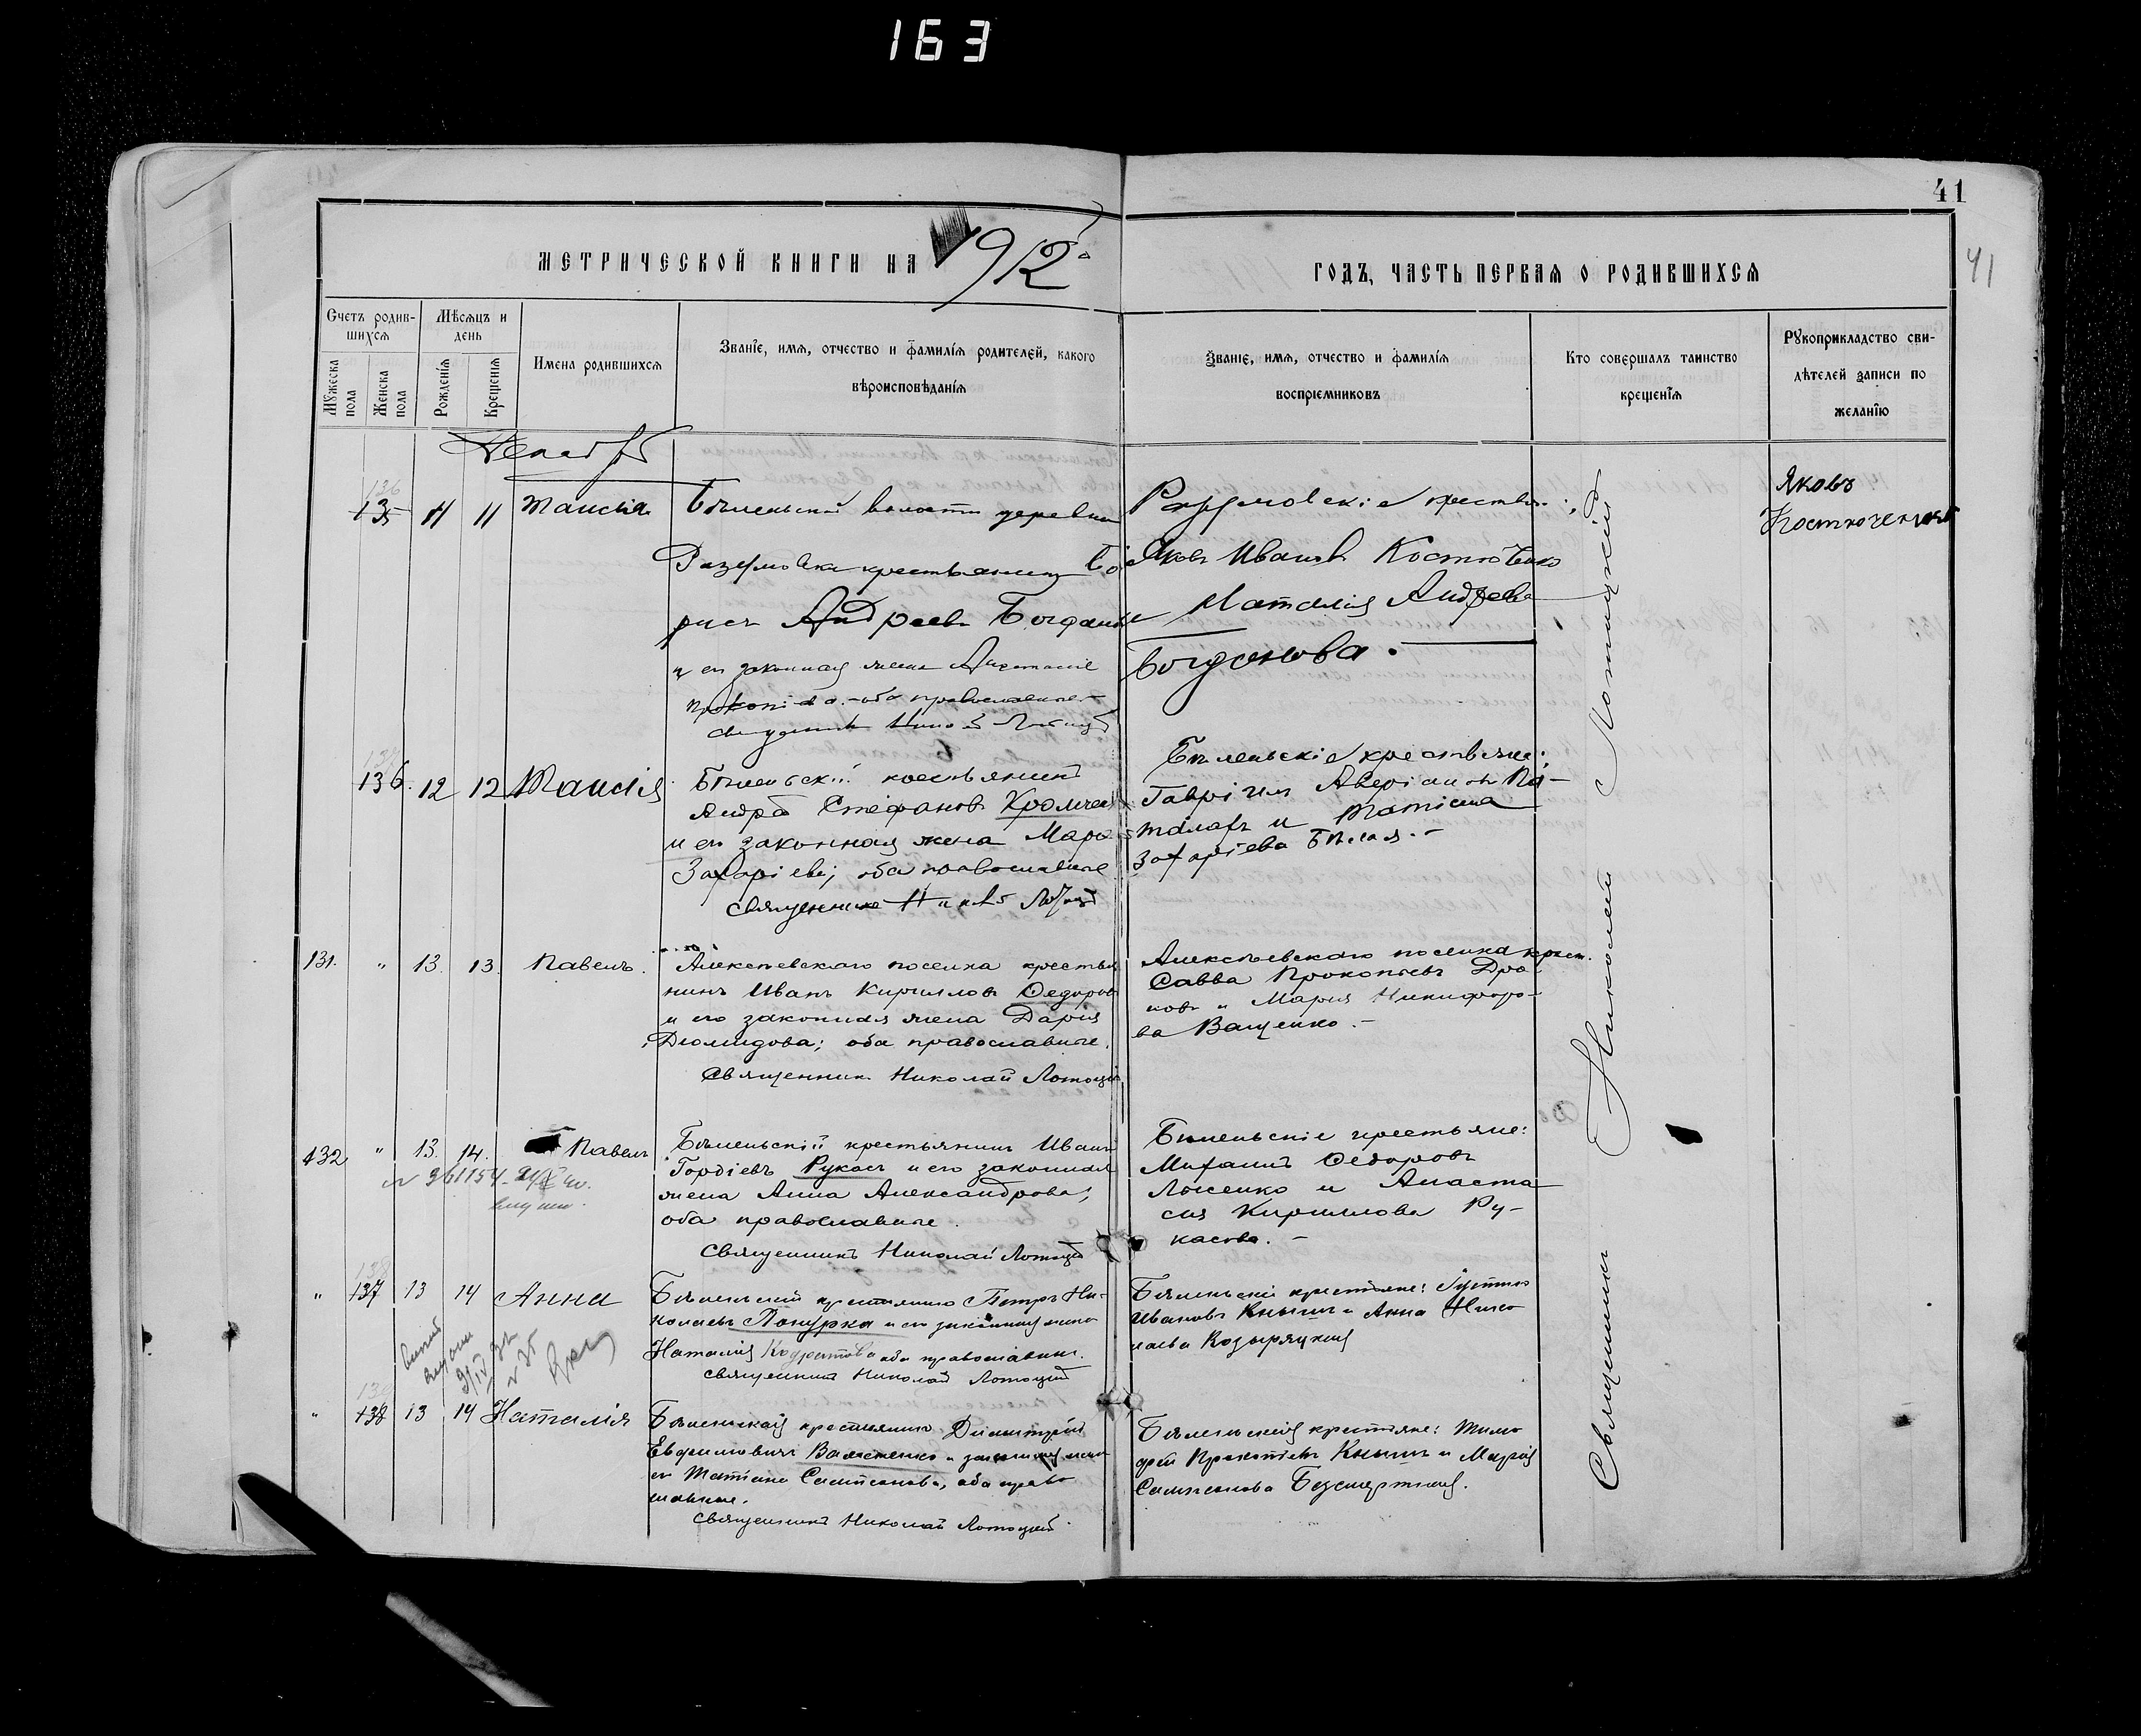 163
41
41
МЕТРИЧЕСКОЙ КНИГИ НА 1912
ГОДЪ, ЧАСТЬ ПЕРВАЯ О РОДИВШИХСЯ
Счетъ родив-
шихся
Мужеска пола
Женска пола
Мѣсяцъ и
день
Рожденія
Крещенія
Имена родившихся
Званіе, имя, отчество и фамилія родителей, какого
вѣроисповѣданія
Званіе, имя, отчество и фамилія
воспріемниковъ
Кто совершалъ таинство
крещенія
Рукоприкладство сви-
дѣтелей записи по
желанію
Декабрь
136
135 11 11 Таисія
Бѣленькой волости деревни
Разумовки крестьянинъ Бо
рисъ Андреевъ Богданов
и его законная жена Анастасія
оба православные.
священникъ Николай Лотоцкій
Яковъ Ивановъ Костюченко
и Наталія Андреева
Богданова.
Яковъ
Костюченко
137
136. 12 12 Таисія
Бѣленьскій крестьянинъ
Андрей Стефановъ Кромчен
и его законная жена Марѳа
Захаріева; оба православные
священникъ Николай Лотоцкій
Бѣленьскіе крестьяне:
Гавріилъ Аверіановъ Па-
талахъ и Татіана
Захаріева Бѣлая.-
131. " 13. 13. Павелъ.
Алексѣевскаго поселка крестья
нинъ Иванъ Кирилловъ Ѳедоровъ
и его законная жена Дарія
Діомидова; оба православные.
Священникъ Николай Лотоцкій
Алексѣевскаго поселка крест.
Савва Прокопіевъ Дро
новъ и Марія Никифоро-
ва Ващенко.-
132 " 13. 14. Павелъ
N 361154
Бѣленьскій крестьянинъ Иванъ
Гордіевъ Рукасъ и его законная
жена Анна Александрова;
оба православные.
Священникъ Николай Лотоцкій
Бѣленьскіе крестьяне:
Михаилъ Ѳедоровъ
Лысенко и Анаста
сія Кириллова Ру-
касова.-
138
" 137 13 14 Анна
Бѣленьскій крестьянинъ Петръ Ни-
колаевъ Понурка и его законная жена
Наталія оба православные.
священникъ Николай Лотоцкій
Бѣленьскіе крестьяне:
Ивановъ Кнышъ и Анна Нико
лаева Козыряцкая
139
" 138 13 14 Наталія
Бѣленьскій крестьянинъ Димитрій
Евфимовичъ и законная жена
его Татіана Сампсонова, оба право
славные.
священникъ Николай Лотоцкій.
Бѣленьскіе крестьяне: Тимо
фей Прокопіевъ Кнышъ и Марія
Сампсонова Безсмертная.
Священникъ Николай Лотоцкій